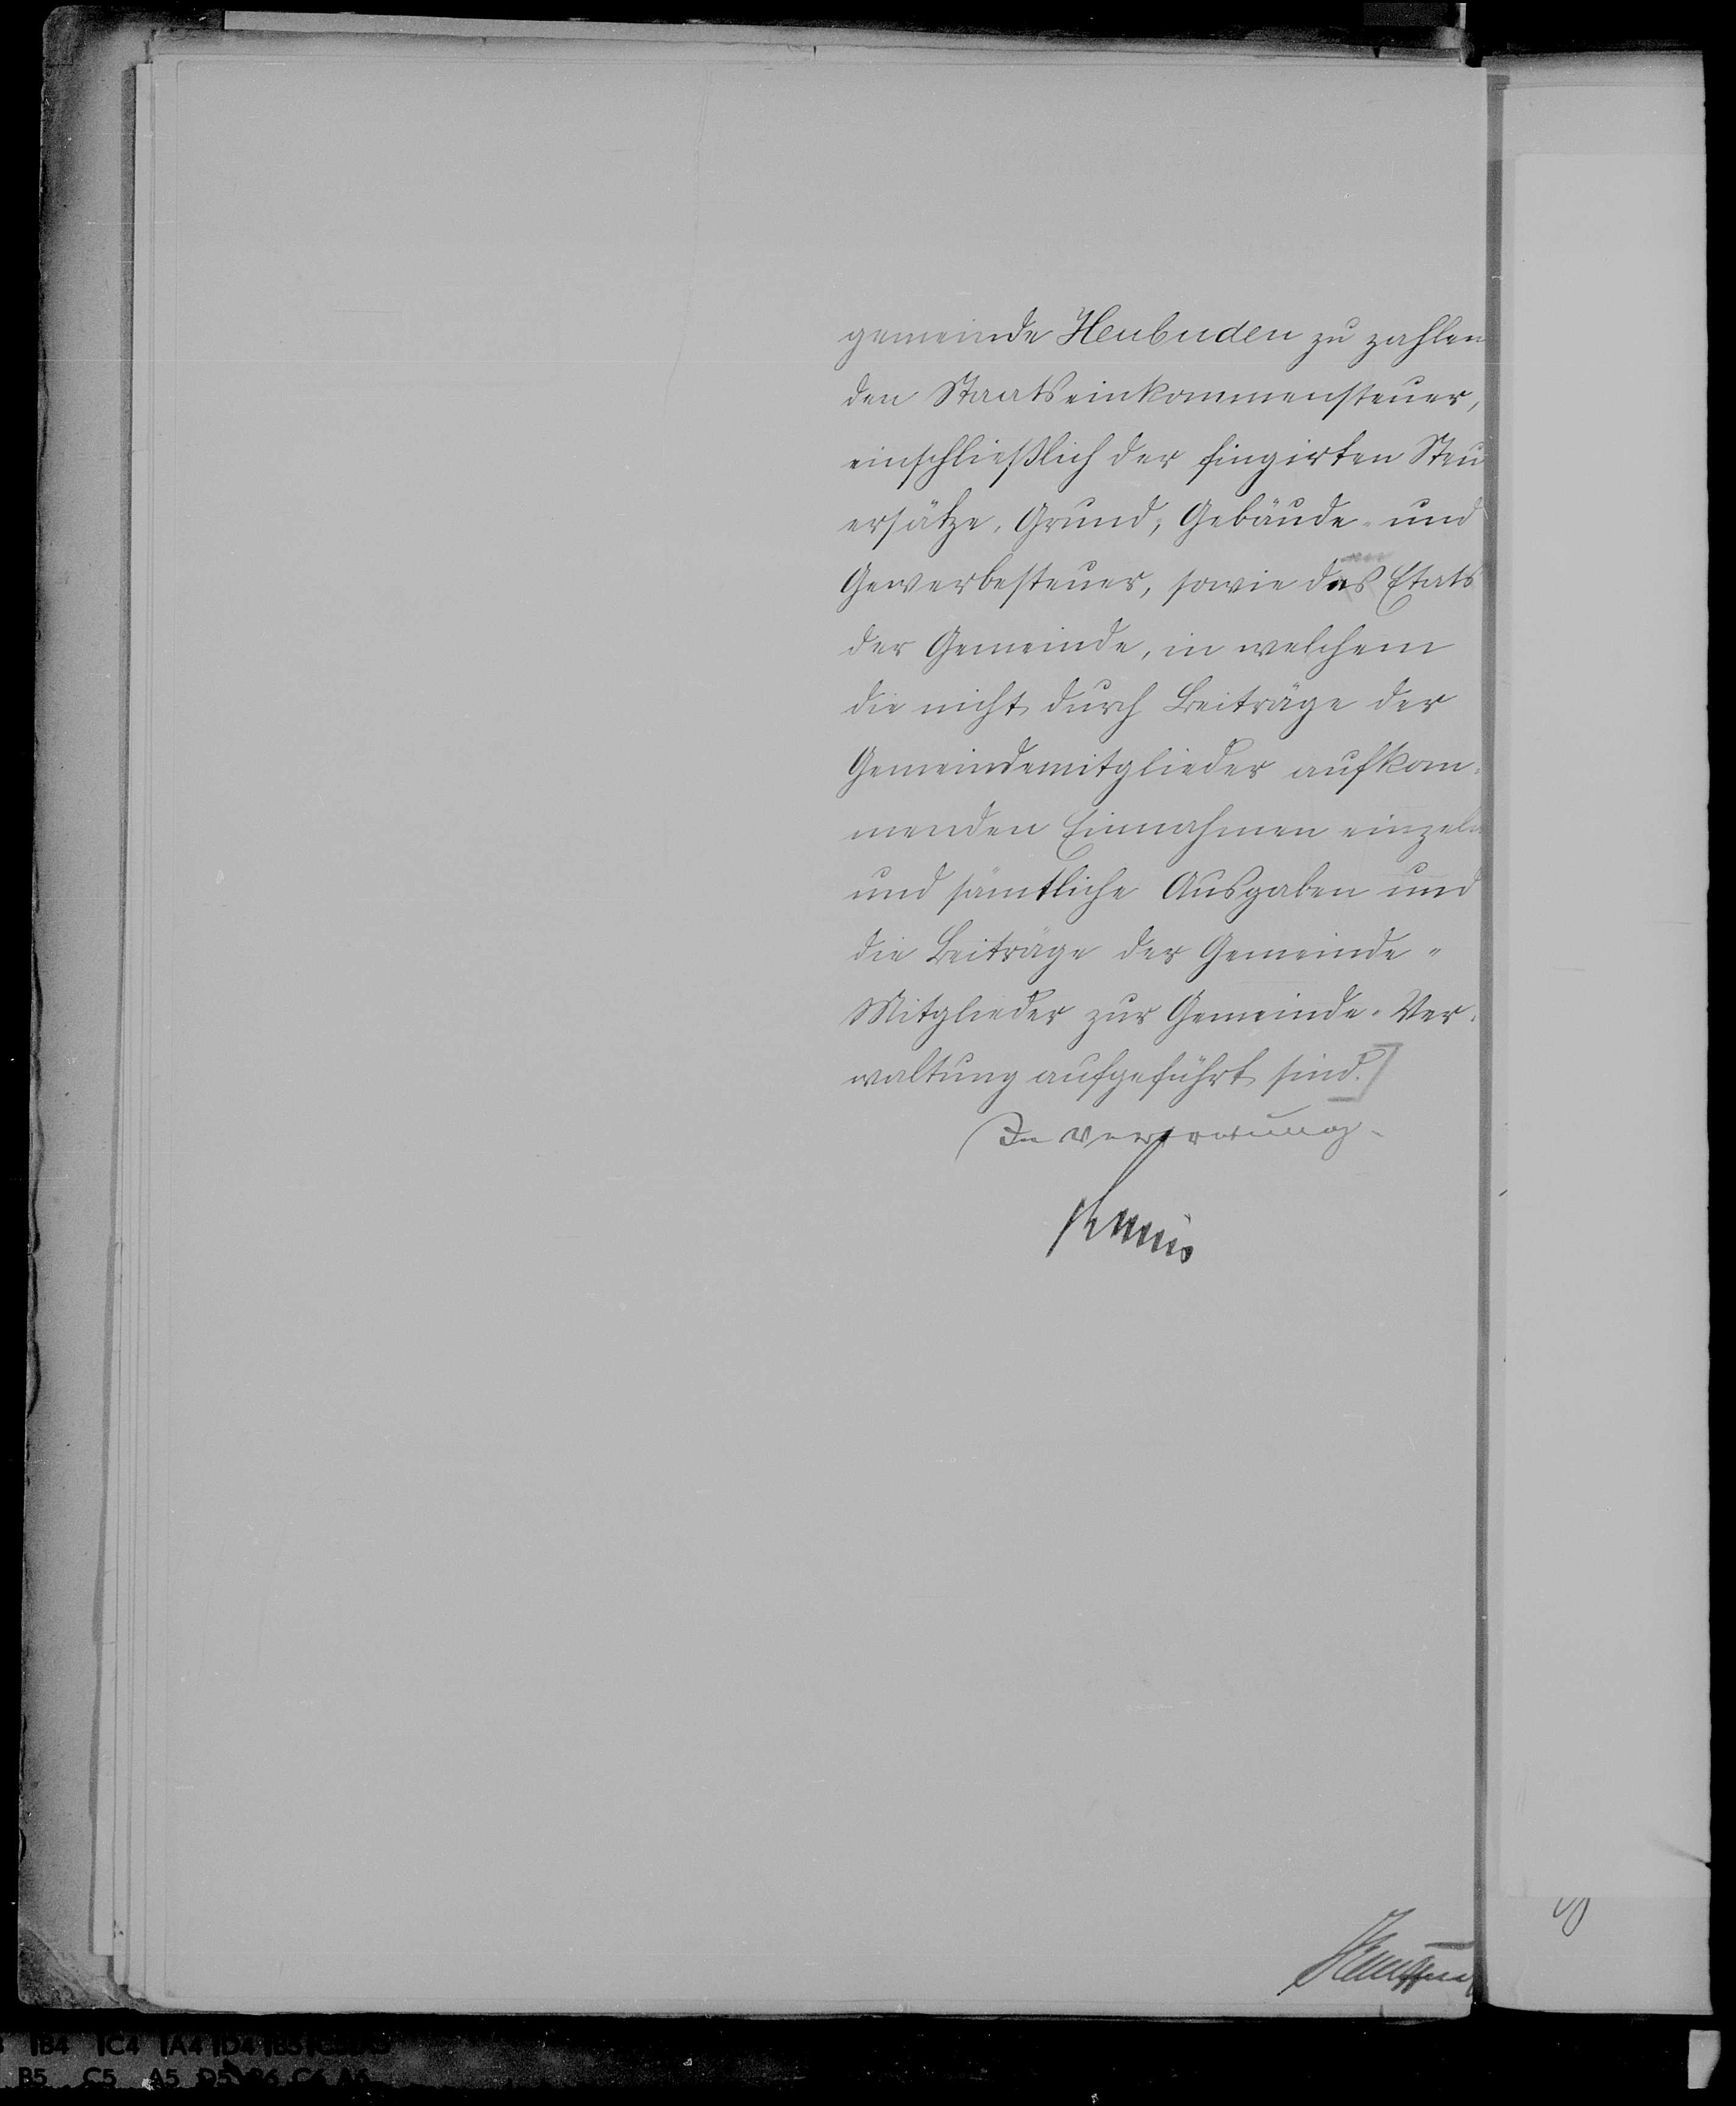 gemeinde Heubuden zu zahlen
den Staatseinkommensteuer,
einschließlich der fingirten Steu
ersätze, Grund-, Gebäude- und
Gewerbesteuer, sowie des Etats
der Gemeinde, in welchem
die nicht durch Beiträge der
Gemeindemitglieder aufkom-
menden Einnahmen einzeln
und sämtliche Ausgaben und
die Beiträge der Gemeinde-
Mitglieder zur Gemeinde-Ver-
waltung aufgeführt sind.]
In Vertretung.
B4 C4 A4 D4 B5
B5 C5 A5 D5 B6 C6 A6